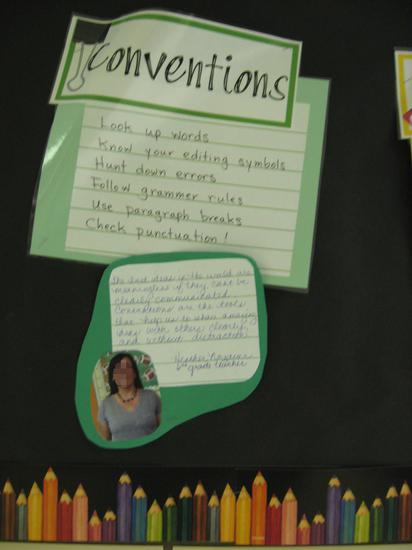 Conventions
Look up words
Know your editing symbols
Hunt down errors
Follow grammer rules
Use paragraph breaks
Check punctuation!
The best ideas in the world are
meaningless if they can't be
clearly communicated.
Conventions are the tools
that help us to share amazing
ideas with others clearly,
and without distraction.
Heather
6th grade teacher